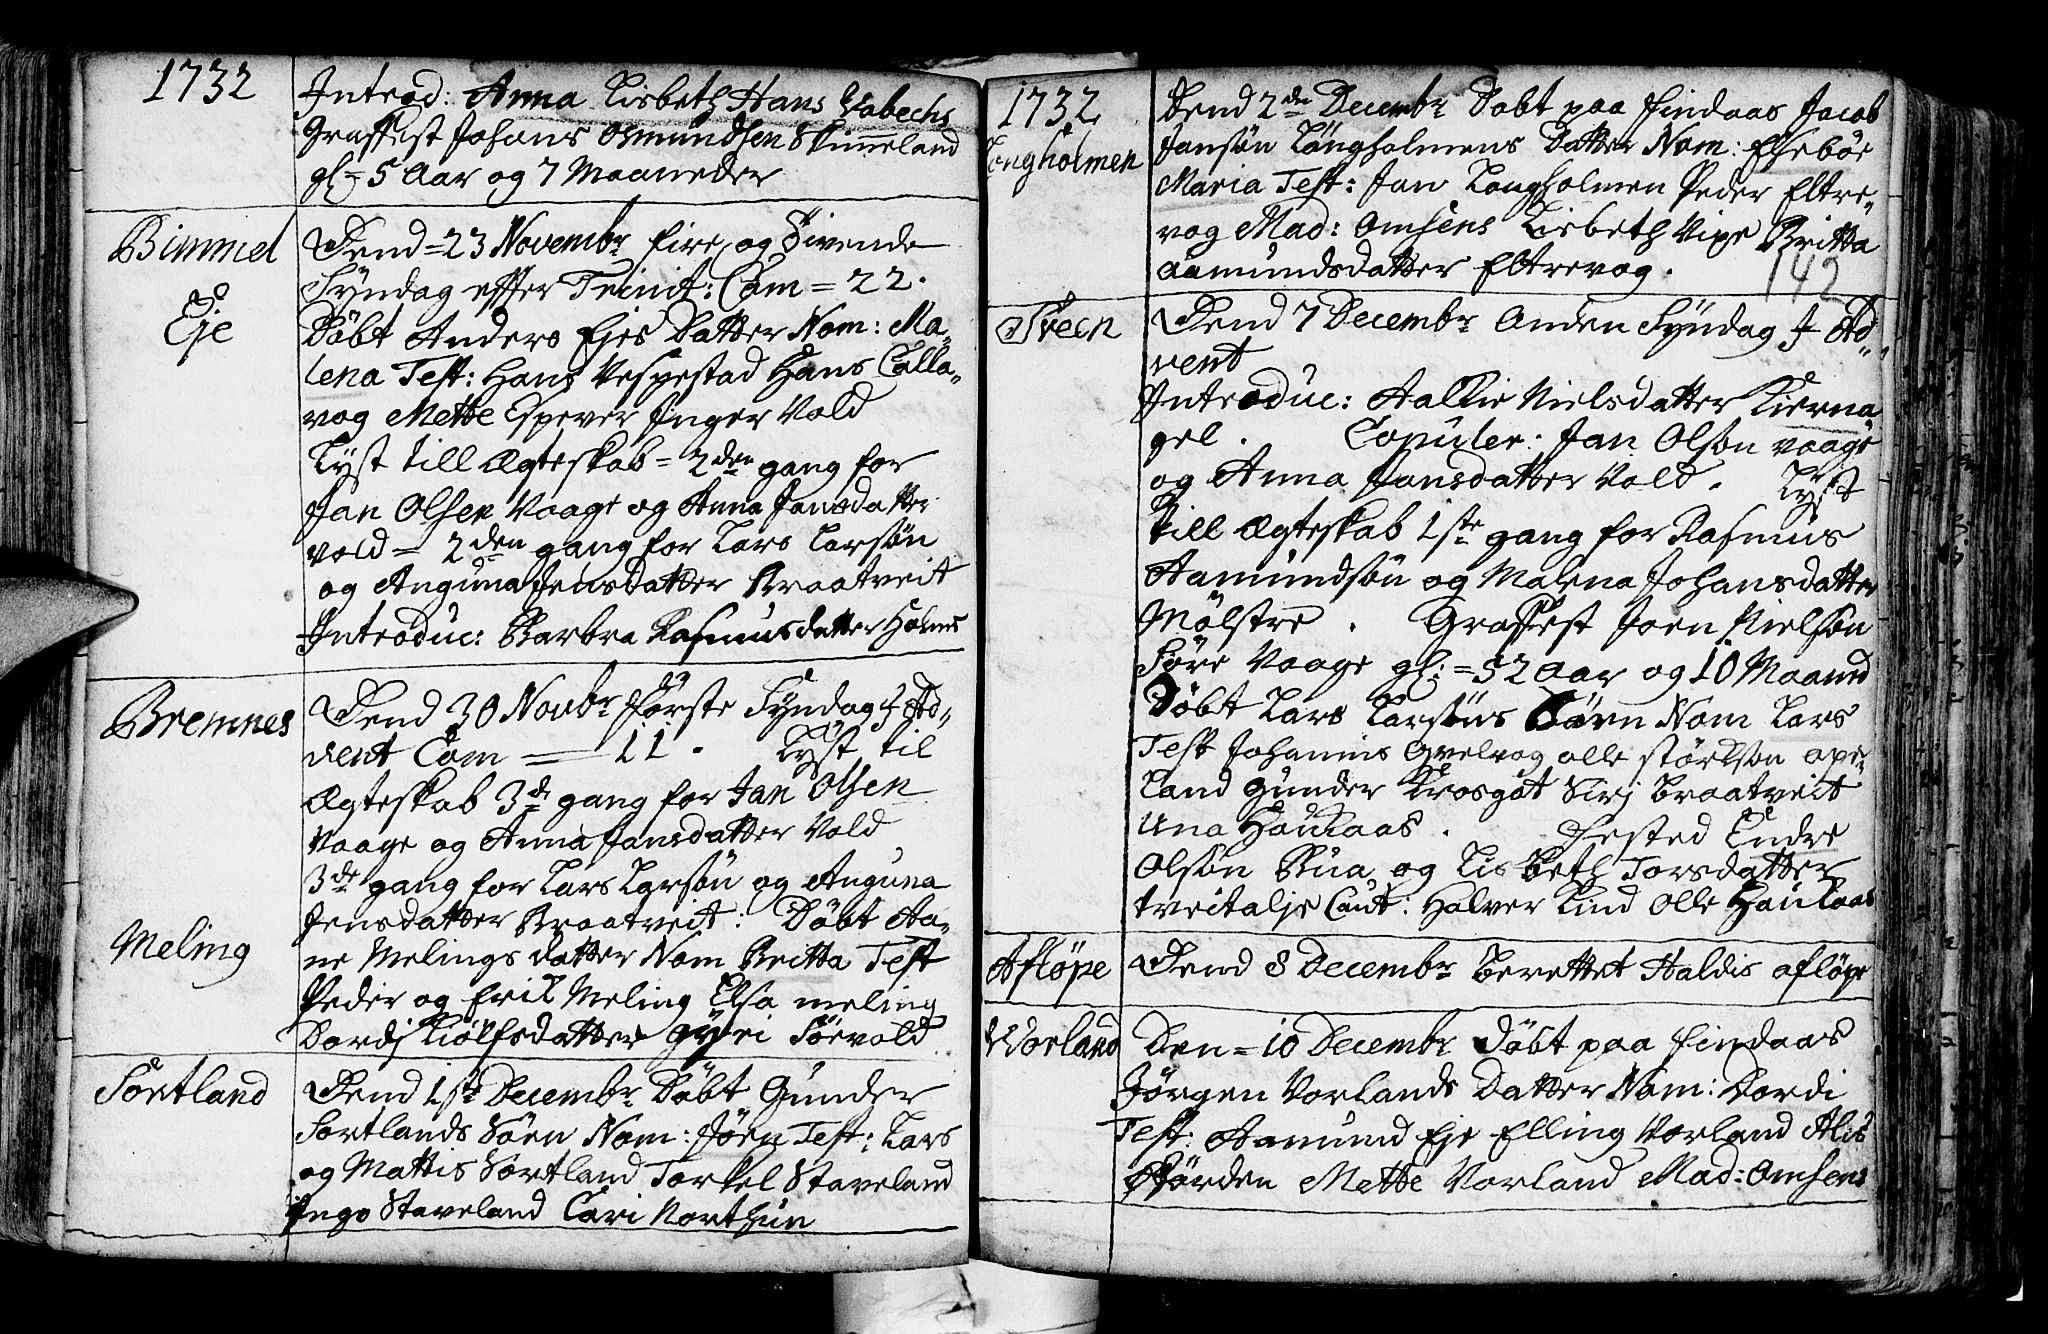 1732
Introd: Anna Lisbeth Hans Vabechs
Graffest Johans Osmundsen Skimeland
gl = 5 Aar og 7 Maaneder
Bømmel
Dend = 23 Novembr fire og Tivende
Syndag effter Trinit: Com = 22.
Eje
Døbt Anders Ejes Datter Nom: Ma„
lena Test: Hans Vespestad Hans Calla„
vog Mette Espever Inger Vold
Lyst till Ægteskab = 2den gang for
Jan Olsen Vaage og Anna Jansdatter
vold = 2den gang for Lars Larsøn
og Anguna Jensdatter Braatveit
Introduc: Barbra Rasmusdatter Holms
Bremnes
Dend 30 Novbr første Syndag I Ad„
vent Com = 11. Lyst til
Ægteskab 3de gang for Jan Olsen
Vaage og Anna Jansdatter Vold
3de gang for Lars Larsøn og Anguna
Jensdatter Braatveit: Døbt Aa„
Meling
ne Melings datter Nom Britta Test
Peder og Erik Meling Elsa meling
Dordj Kiølfsdatter gyri Sørvold
Sortland
Dend 1ste Decembr Døbt Gunder
Sortlands Søen Nom: Jøen Test: Lars
og Mattis Sortland Torkel Staveland
Ingo Staveland Cari Northun
1732
Longholmen
Dend 2den Decembr Døbt paa Findaas Jacob
Jansøn Longholmens Datter Nom: Elsebøe
Maria Test: Jan Longholmen Peder Eltre„
vog Mad: Omsens Lisbeth Vixe Britta
Aamundsdatter Eltrevog.
142
Sveen
Dend 7 Decembr Anden Syndag I Ad„
vent
Introduc: Aallie Nielsdatter Kierna
gel. Copuler: Jan Olsøn vaage
og Anna Jansdatter Vold. Lyst
till Ægteskab 1ste gang for Rasmus
Aamundsøn og Malena Johansdatter
Mølstre. Graffest Joen Nielsøn
Søre Vaage gl: = 52 Aar og 10 Maaned
Døbt Lars Larsøns Børn Nom Lars
Test Johannis Qvelvog olle størkson ope„
land Gunder Krosgøt Sirj Braatveit
Una Houkaas. Fested Endre
Olsøn Rua og Lisbeth Torsdatter
tveitalje Caut: Halver Lind Olle Houkaas
Afløpe
Dend 8 Decembr Berettet Haldis afløpe
Vorland
Den = 10 Decembr Døbt paa Findaas
Jørgen Vorlands Datter Nom: Dordi
Test: Aamund Eje Elling Vorland Alis
Størden Mette Vorland Mad: Omsens